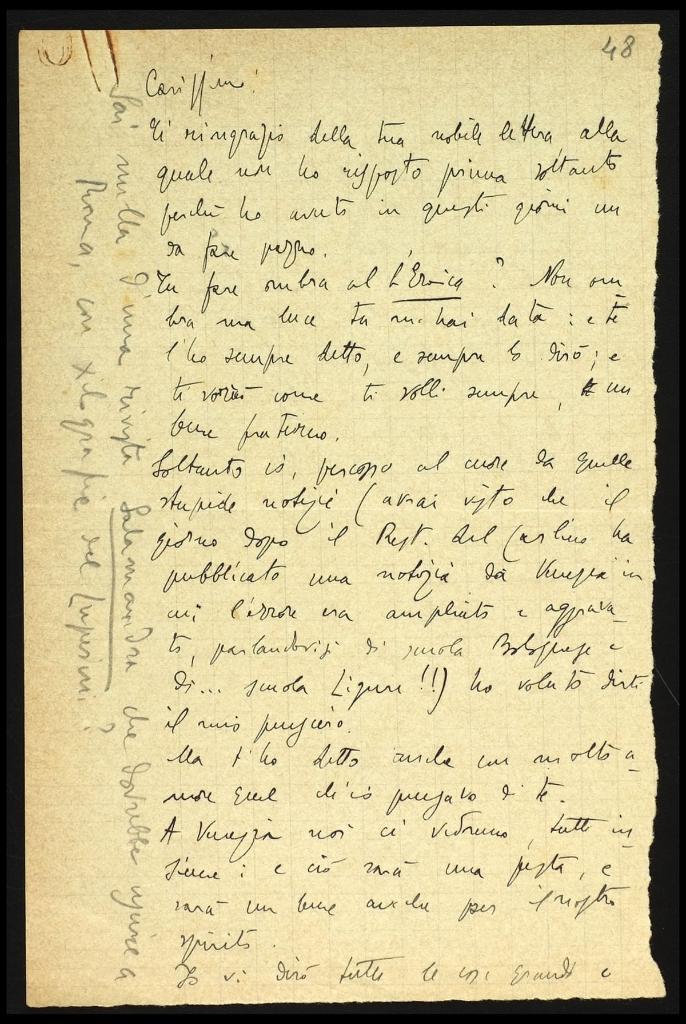 48
Carissimo!
Ti ringrazio della tua nobile lettera, alla
quale non ho risposto prima soltanto
perchè ho avuto in questi giorni un
da fare pazzo.
Tu fare ombra al L'Eroica? Non om
bra ma luce tu m'hai data: e te
l'ho sempre detto, e sempre lo dirò; e
ti vorrò come ti volli sempre, un
bene fraterno.
Soltanto io, percosso al cuore da quelle
stupide notizie (avrai visto che il
giorno dopo il Rest. del Carlino ha
pubblicato una notizia da Venezia in
cui l'errore era ampliato e aggrava-
to, parlandovisi di scuola Bolognese e
di... scuola Ligure!!) ho voluto dirti
il mio pensiero.
Ma t'ho detto anche con molto a-
more quel ch'io pensavo di te.
A Venezia noi ci vedremo, tutti in-
sieme: e ciò sarà una festa, e
sarà un bene anche per il nostro
spirito.
Io vi dirò tutte le cose grandi e
Sai nulla d'una rivista Salamandra che dovrebbe uscire a
Roma, con xilografie del Lupesini?